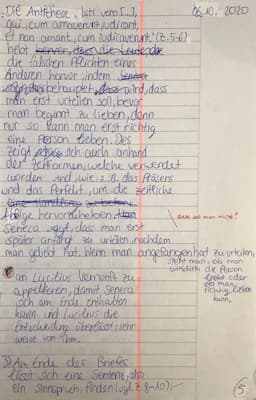 06.10.2020
Die Antithese „Isti vero [...],
qui, cum amaverunt, iudicant,
et non amant, cum iudicaverunt." (Z. 5-6)
hebt
die falschen Pflichten eines
Anderen hervor, indem
behauptet wird, dass
man erst urteilen soll, bevor
man beginnt zu lieben, denn
nur so kann man erst richtig
eine Person lieben. Dies
zeigt sich auch anhand
der Zeitformen, welche verwendet
worden sind, wie z.B. das Präsens
und das Perfekt, um die zeitliche
Abfolge hervorzuheben.
Seneca sagt, dass man erst
später anfängt zu urteilen, nachdem
man geliebt hat. Wenn man angefangen hat zu urteilen,
sieht man, ob man
wirklich die Person
liebt oder
ob man
richtig lieben
kann.
an Lucilius Vernunft zu
appellieren, damit Seneca
sich am Ende enthalten
kann und Lucilius die
Entscheidung überlässt, sehr
weise von ihm.
3) Am Ende des Briefes
lässt sich eine Sentenz, also
ein Sinnspruch, finden (vgl. Z. 8-10),
5